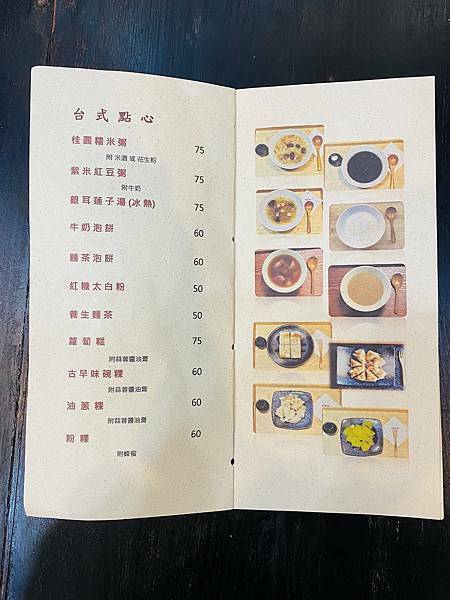 台式點心
桂圓糯米粥 75
附 米酒 或 花生粉
紫米紅豆粥 75
附牛奶
銀耳蓮子湯(冰熱) 75
牛奶泡餅 60
麵茶泡餅 60
紅糖太白粉 50
養生麵茶 50
蘿蔔糕 75
附蒜蓉醬油膏
古早味碗粿 60
附蒜蓉醬油膏
油蔥粿 60
附蒜蓉醬油膏
粉粿 60
附蜂蜜